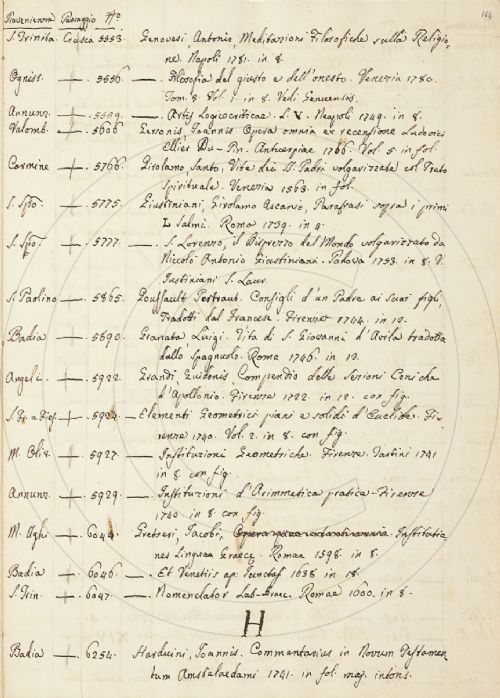 Provenienza Passaggio N.o
164
S. Trinita. Crusca 5553. Genovesi, Antonio, Meditazioni Filosofiche sulla Religio-
ne. Napoli 1781. in 8.
Ogniss. — 5556. — Filosofia del giusto e dell'onesto. Venezia 1780.
Tom. 8. Vol. 1. in 8. Vedi Genuensis.
Annunz. — 5559. — Artis Logicocriticae. L. V. Neapoli 1749. in 8.
Valomb. — 5606 Gersonis, Joannis Opera omnia ex recensione Ludovici
Ellies Du-Pin. Antuerpiae 1706. Vol. 5. in fol.
Carmine — 5766. Girolamo, Santo, Vite dei SS. Padri volgarizzate col Prato
Spirituale. Venezia 1563. in fol.
S. Spto: — 5775. Giustiniani, Girolamo Ascanio, Parafrasi sopra i primi
L Salmi. Roma 1739. in 4.
S. Spo: — 5777. — S. Lorenzo, il Disprezzo del Mondo volgarizzato da
Niccolò Antonio Giustiniani. Padova 1753. in 8. V.
Justiniani S. Laur.
S. Paolino — 5865. Goussault Consigli d'un Padre ai suoi figli,
Tradotti dal Francese. Firenze 1744. in 12.
Badia — 5890. Granata Luigi. Vita di S. Giovanni d'Avila tradotta
dallo Spagnuolo. Roma 1746. in 12.
Angeli. — 5922. Grandi, Guidonis, Compendio delle Sezioni Coniche
d'Apollonio. Firenze 1722. in 12. con fig.
5924 — Elementi Geometrici piani e solidi d'Euclide. Fi-
renze 1740. Vol. 2. in 8. con fig.
M. Oliv. — 5927. — Instituzioni Geometriche. Firenze. Tartini 1741
in 8. con fig.
Annunz. — 5929. — Instituzioni d'Arimmetica pratica. Firenze
1740. in 8. con fig.
M. Ughi — 6044. Gretseri, Jacobi, Institutio
nes Linguae Graecę. Romae 1598. in 8.
Badia — 6046. — Et Venetiis ap. 1638 in 18.
S. Trin. — 6047. — Nomenclator Lat-Graec. Romae 1600. in 8.
H
Badia — 6254. Harduini, Joannis. Commentarius in Novum Testamen
tum Amstelaedami 1741. in fol. maj. intons.